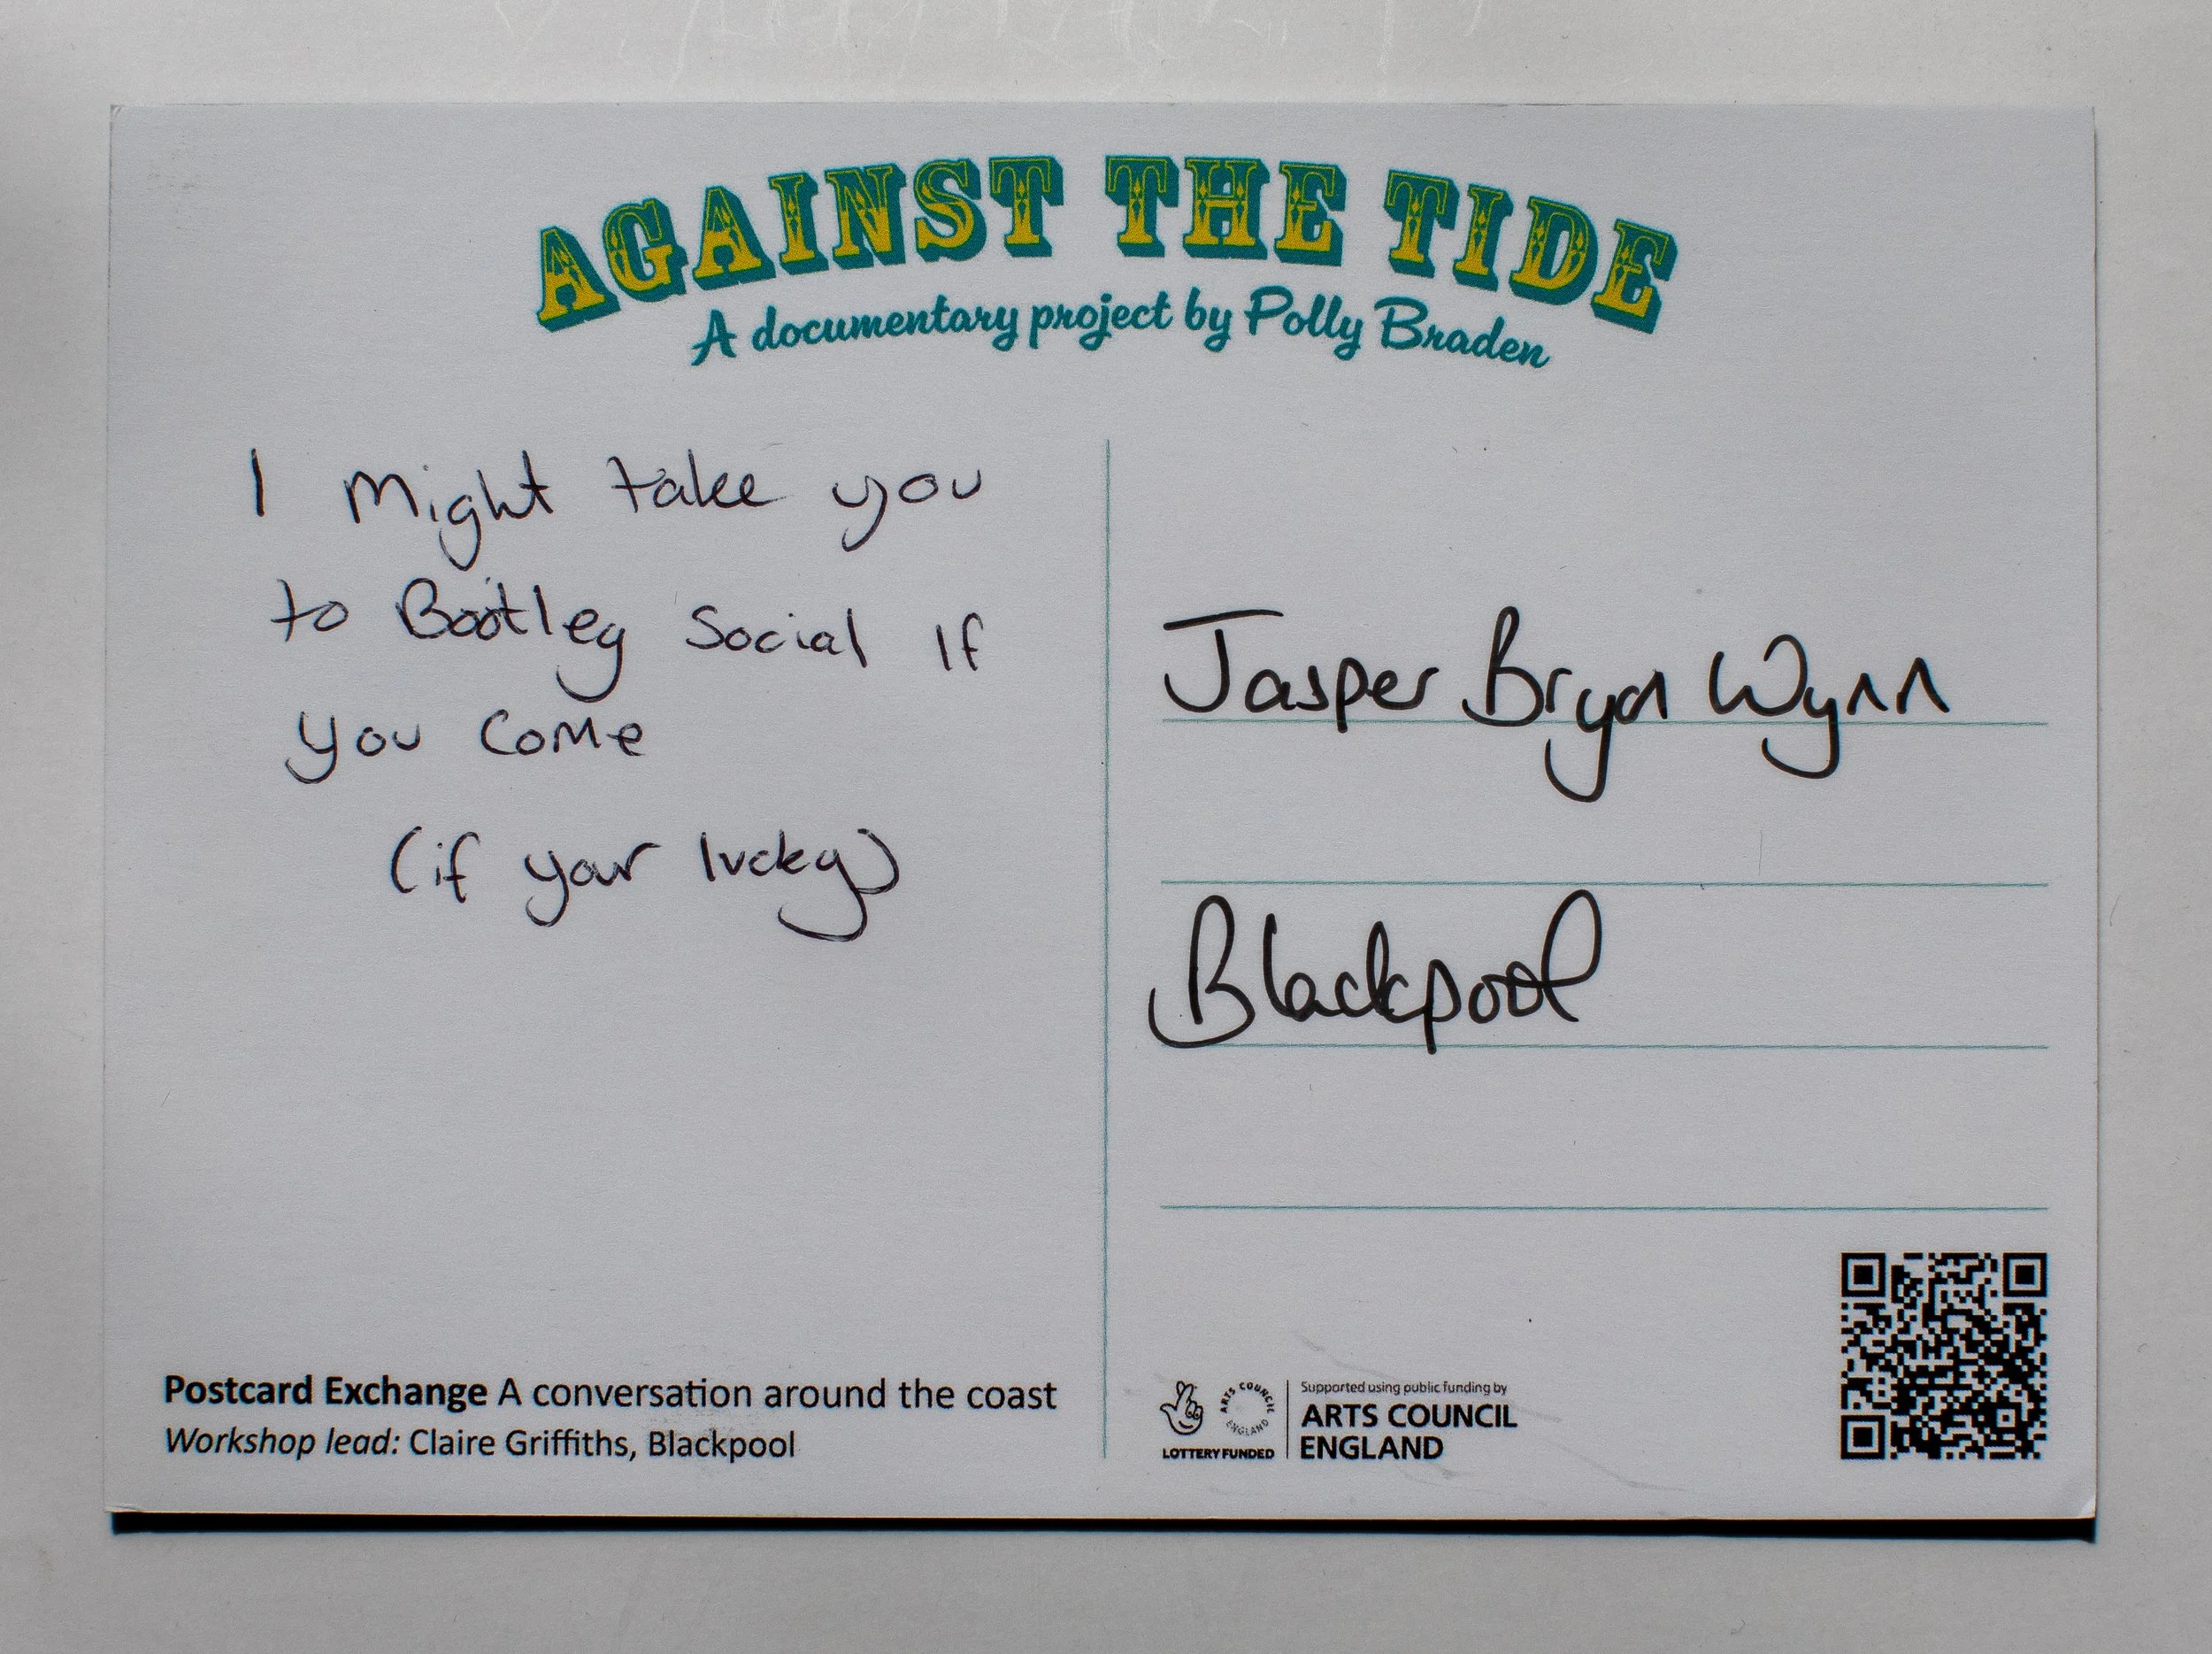 AGAINST THE TIDE
A documentary project by Polly Braden
I Might take you
to Bootleg Social If
you Come
(if your lucky)
Jasper Bryn Wynn
Blackpool
Postcard Exchange A conversation around the coast
Workshop lead: Claire Griffiths, Blackpool
LOTTERY FUNDED
ARTS COUNCIL
ENGLAND
Supported using public funding by
ARTS COUNCIL
ENGLAND